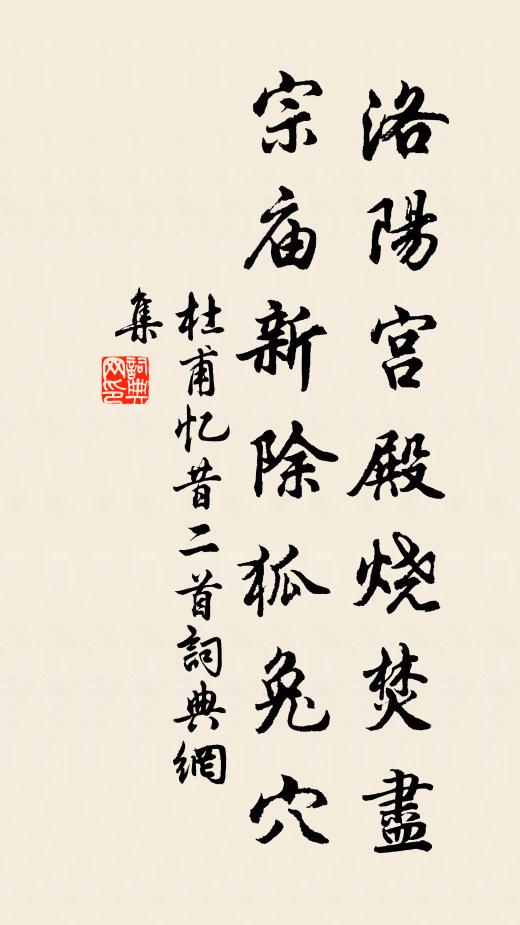 洛陽宫殿烧焚盡
宗庙新除狐兔穴
杜甫忆昔二首詞典網
集
詞典网印